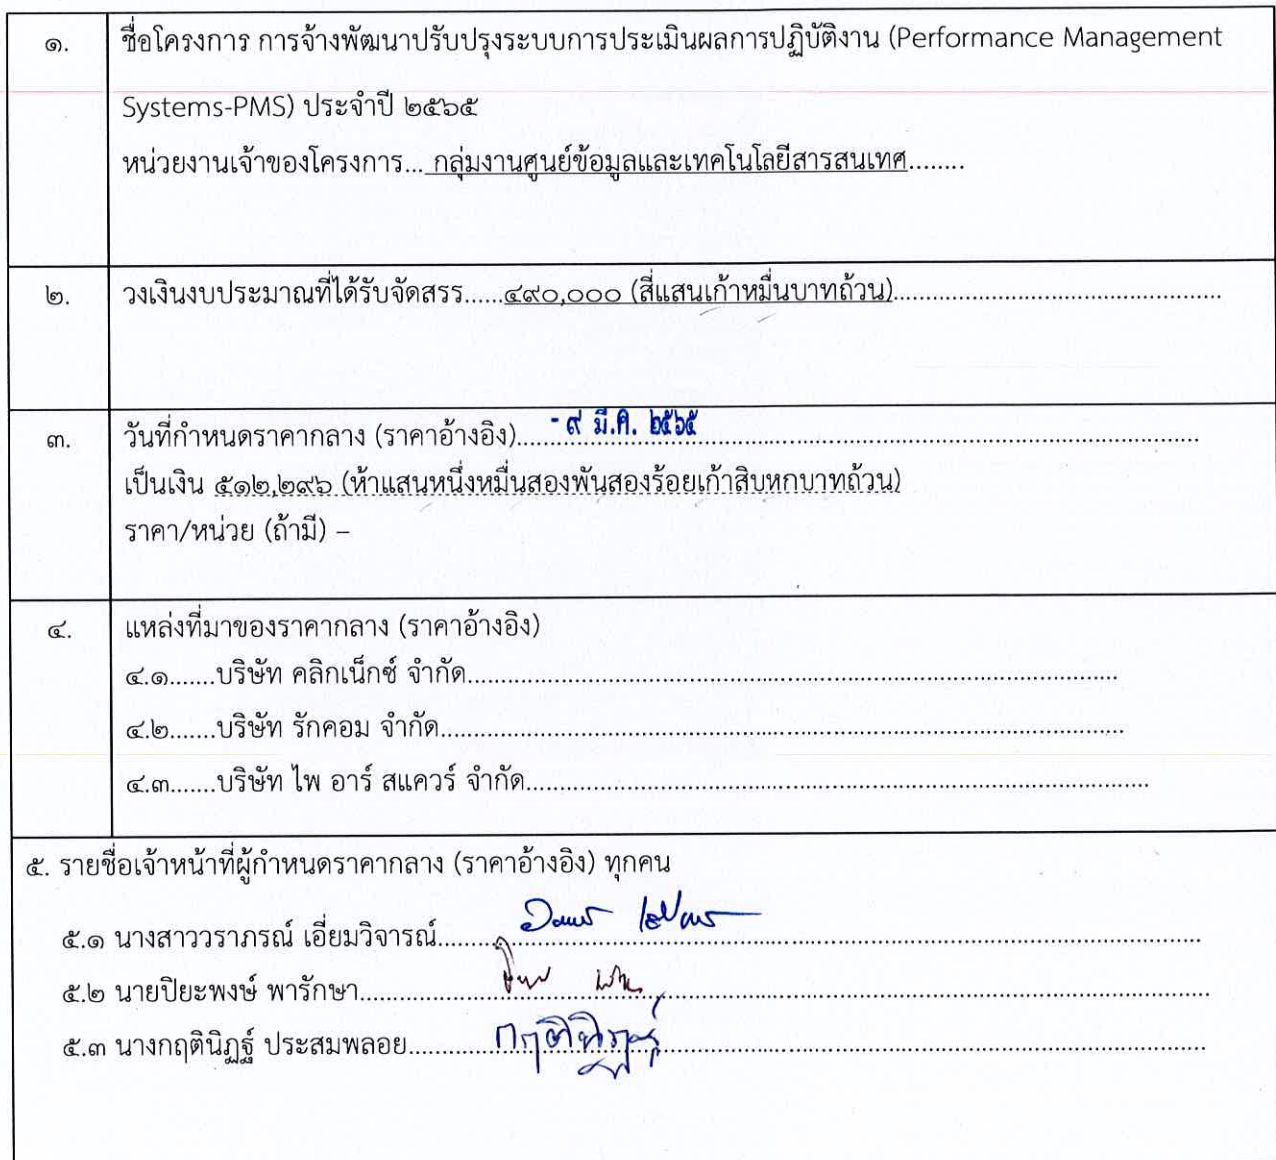 ๑. ชื่อโครงการ การจ้างพัฒนาปรับปรุงระบบการประเมินผลการปฏิบัติงาน (Performance Management
Systems-PMS) ประจำปี ๒๕๖๕
หน่วยงานเจ้าของโครงการ... กลุ่มงานศูนย์ข้อมูลและเทคโนโลยีสารสนเทศ........
๒. วงเงินงบประมาณที่ได้รับจัดสรร......๔๙๐,๐๐๐ (สี่แสนเก้าหมื่นบาทถ้วน)......
๓. วันที่กำหนดราคากลาง (ราคาอ้างอิง)......- ๙ มี.ค. ๒๕๖๕......
เป็นเงิน ๕๑๒,๒๙๖ (ห้าแสนหนึ่งหมื่นสองพันสองร้อยเก้าสิบหกบาทถ้วน)
ราคา/หน่วย (ถ้ามี) –
๔. แหล่งที่มาของราคากลาง (ราคาอ้างอิง)
๔.๑.......บริษัท คลิกเน็กซ์ จำกัด......
๔.๒.......บริษัท รักคอม จำกัด......
๔.๓.......บริษัท ไพ อาร์ สแควร์ จำกัด......
๕. รายชื่อเจ้าหน้าที่ผู้กำหนดราคากลาง (ราคาอ้างอิง) ทุกคน
๕.๑ นางสาววราภรณ์ เอี่ยมวิจารณ์......
๕.๒ นายปิยะพงษ์ พารักษา......
๕.๓ นางกฤตินิฏฐ์ ประสมพลอย......